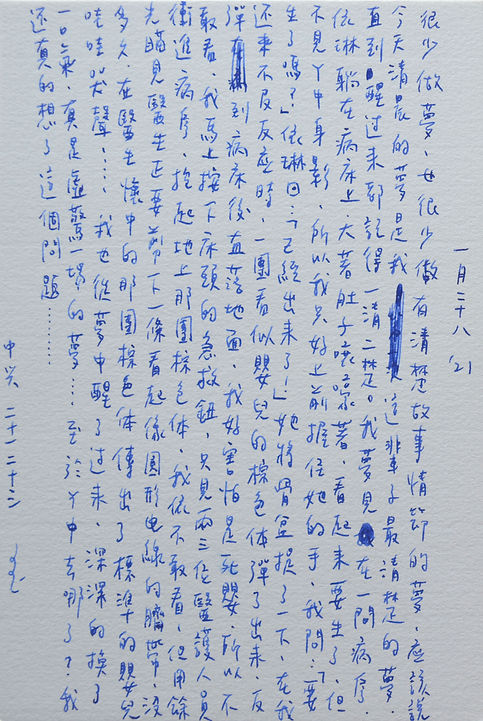 一月二十八 '21
很少做夢、也很少做有清楚故事情節的夢、應該說
今天清晨的夢是我這輩子最清楚的夢、
直到醒过来都記得一清二楚。我夢見在一間病房、
依琳躺在病床上、大著肚子嚎著、看起来要生了、但
不見丫中身影、所以我只好上前握住她的手、我問:「要
生了嗎?」依琳回:「已經出来了!」她將骨盆提了一下、在我
还来不及反应時、一團看似嬰兒的棕色体彈了出来、反
彈到病床後直落地面、我好害怕是死嬰、所以不
敢看、我馬上按下床頭的急救鈕、只見兩三位醫護人員
衝進病房、抱起地上那團棕色体、我依不敢看、但用餘
光瞄見醫生正要剪下一條看起像圓形电線的臍帶、沒
多久、在醫生懷中的那團棕色体傳出了標準的嬰兒
哇哇哭聲……我也從夢中醒了过来、深深的換了
一口氣、真是虛驚一場的夢…至於丫中去哪了?我
还真的想了這個問題………
中兴 二十一 二十三